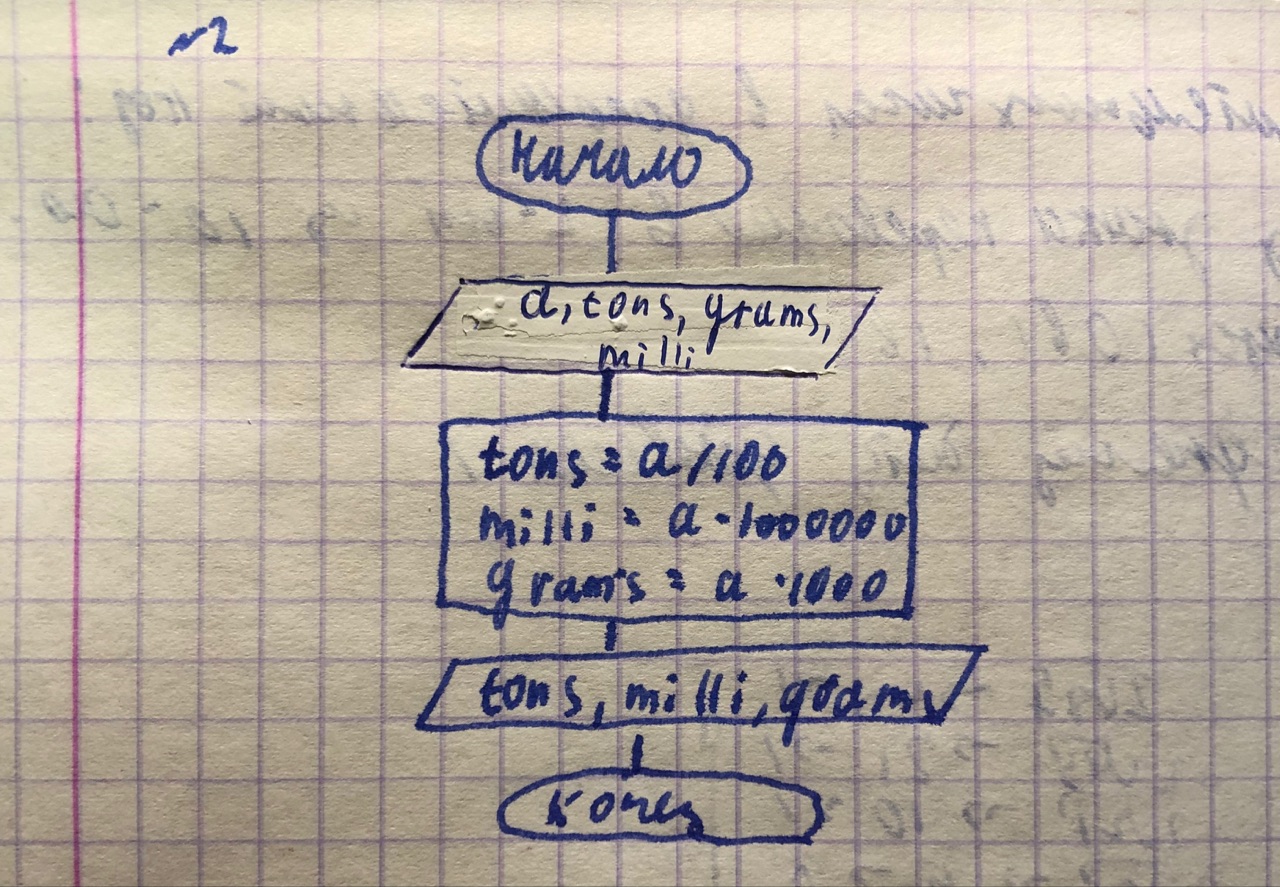 №2
Начало
a, tons, grams,
milli
tons = a/100
milli = a·1000000
grams = a·1000
tons, milli, grams
конец